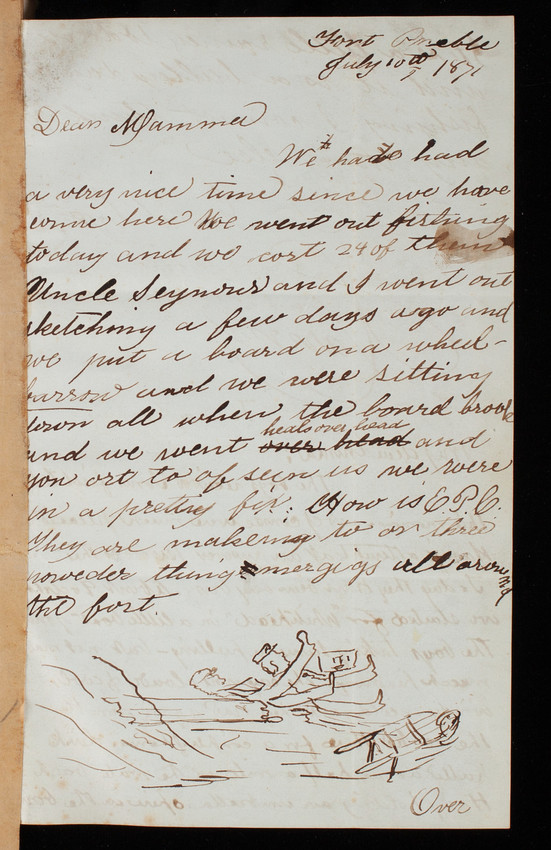 Fort Preble
July 10th 1871
Dear Mamma
We have had
a very nice time since we have
come here We went out fishing
today and we cort 24 of them
Uncle Seymour and I went out
sketching a few days ago and
we put a board on a wheel-
burrow and we were sitting
down all when the board brook
heals over head
and we went over head and
you ort to of seen us we were
in a pretty fix. How is E.P.C.
They are makeing to or three
powder thing mergigs all around
the fort.
Over